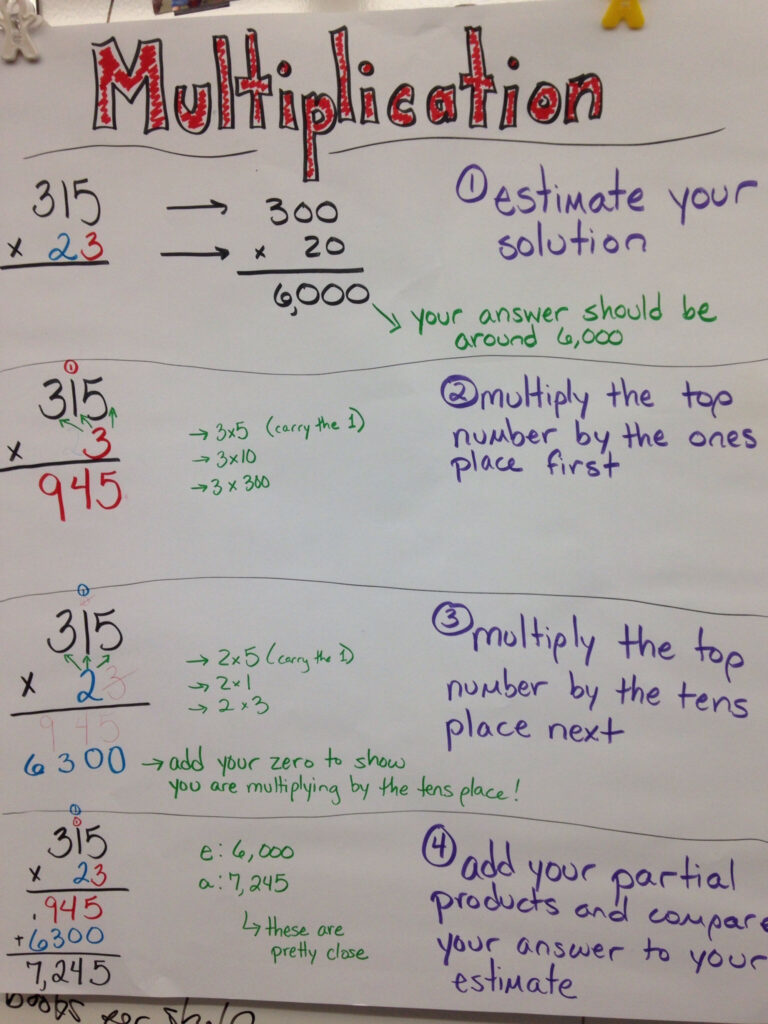 Multiplication
315 → 300
x 23 → x 20
6,000
① estimate your
solution
your answer should be
around 6,000
①
315
x 3
945
→ 3x5 (carry the 1)
→ 3x10
→ 3 x 300
② multiply the top
number by the ones
place first
315
x 23
945
6300
→ 2x5 (carry the 1)
→ 2x1
→ 2x3
→ add your zero to show
you are multiplying by the tens place!
③ multiply the top
number by the tens
place next
315
x 23
945
+6300
7,245
e: 6,000
a: 7,245
↳ these are
pretty close
④ add your partial
products and compare
your answer to your
estimate